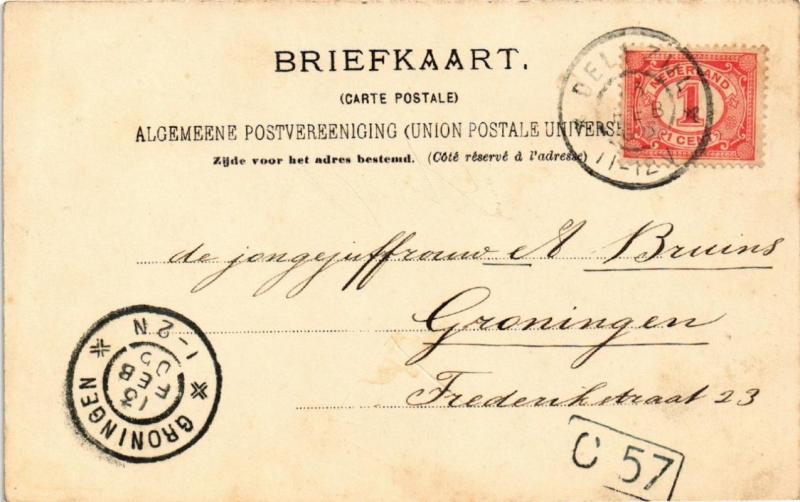 BRIEFKAART.
(CARTE POSTALE)
ALGEMEENE POSTVEREENIGING (UNION POSTALE UNIVERSE
Zijde voor het adres bestemd. (Côté réservé à l'adresse)
NEDERLAND
1
1 CENT
FEB
11-12 V
de jongejuffrouw A Bruins
Groningen
Frederikstraat 23
GRONINGEN
1-2 N
13
FEB
C 57